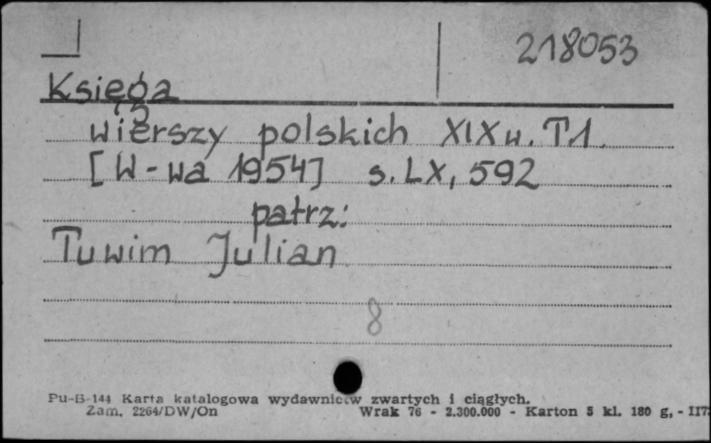 218053
Księga
wierszy polskich XIX w. T1.
[W-wa 1954] s. LX, 592
patrz:
Tuwim Julian
8
Pu-B-144 Karta katalogowa wydawnictw zwartych i ciągłych.
Zam. 2264/DW/On Wrak 76 - 2.300.000 - Karton 5 kl. 180 g, - II73